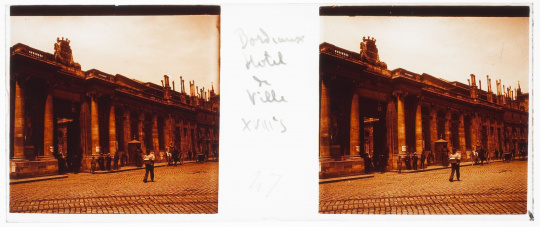 Bordeaux
Hotel
de
Ville
XVIII's
47